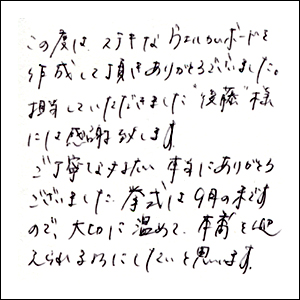 この度は、ステキなウェルカムボードを
作成して頂きありがとうございました。
担当していただきました“後藤”様
には感謝致します。
ご丁寧な対応 本当にありがとう
ございました。挙式は9月の末です
ので、大切に温めて、本番を迎
えられるようにしたいと思います。